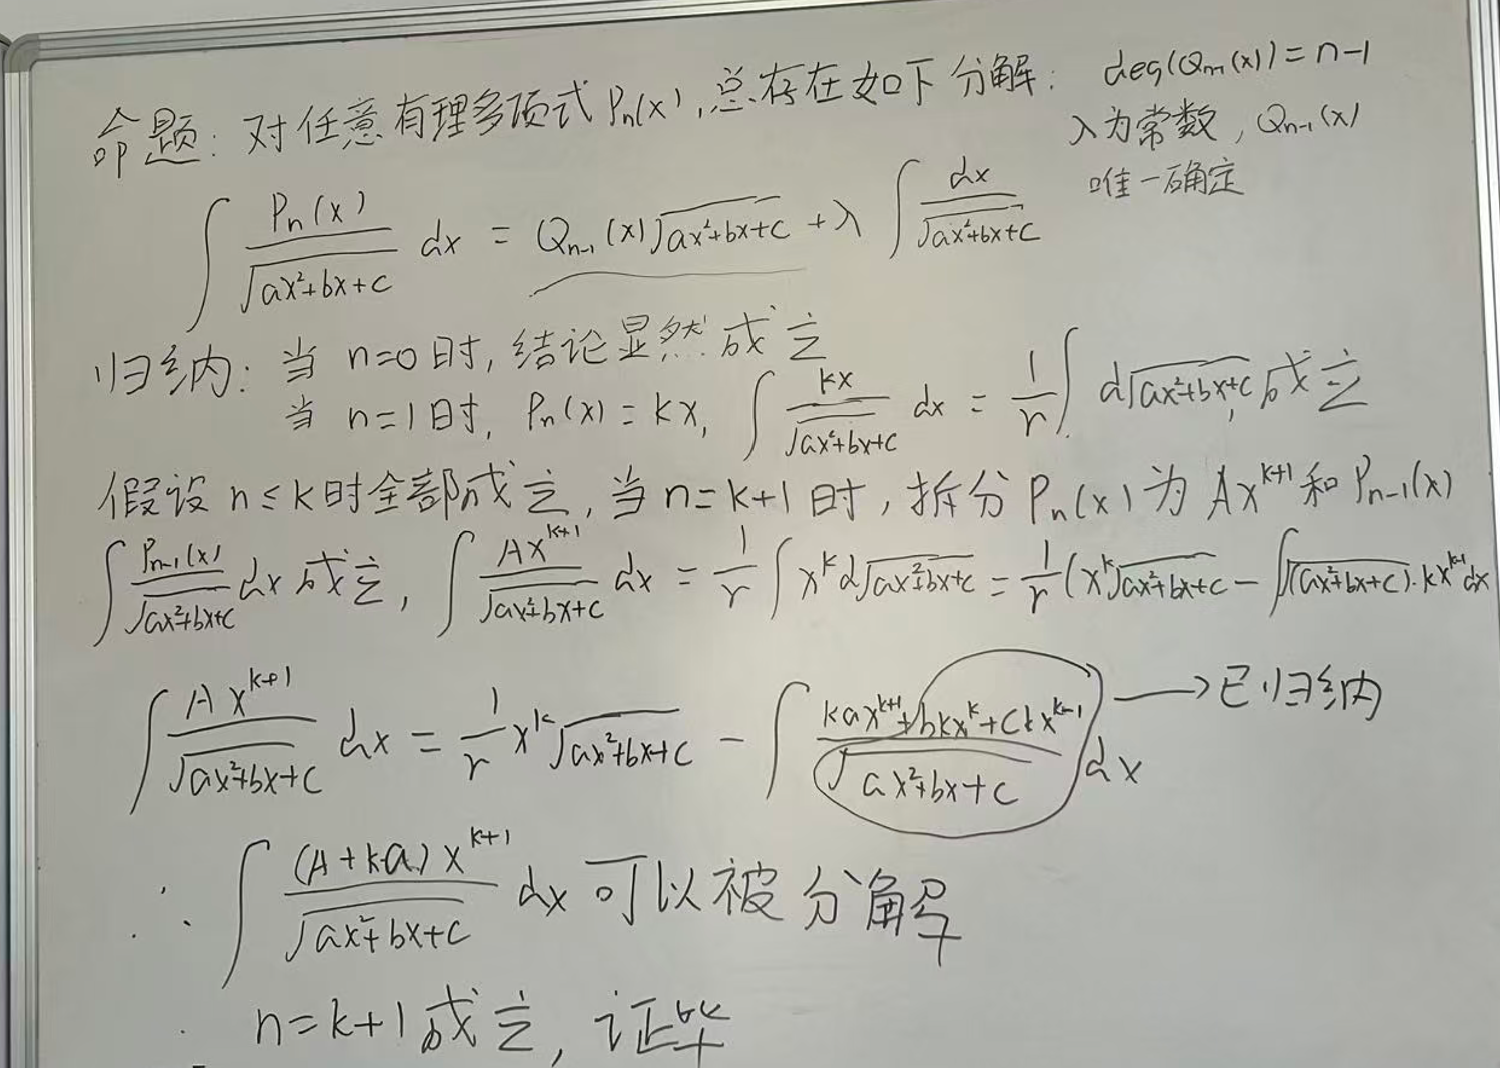 命题: 对任意有理多项式 Pₙ(x), 总存在如下分解: deg(Qₙ₋₁(x)) = n-1
λ为常数, Qₙ₋₁(x)
唯一确定
∫ Pₙ(x)/√(ax²+bx+c) dx = Qₙ₋₁(x)√(ax²+bx+c) + λ ∫ dx/√(ax²+bx+c)
归纳: 当 n=0时, 结论显然成立
当 n=1时, Pₙ(x) = kx, ∫ kx/√(ax²+bx+c) dx = 1/r ∫ d√(ax²+bx+c), 成立
假设 n≤k时全部成立, 当 n=k+1时, 拆分 Pₙ(x) 为 Axᵏ⁺¹ 和 Pₙ₋₁(x)
∫ Pₙ₋₁(x)/√(ax²+bx+c) dx 成立, ∫ Axᵏ⁺¹/√(ax²+bx+c) dx = 1/r ∫ xᵏ d√(ax²+bx+c) = 1/r (xᵏ√(ax²+bx+c) - ∫√(ax²+bx+c)·kxᵏ⁻¹dx
∫ Axᵏ⁺¹/√(ax²+bx+c) dx = 1/r xᵏ√(ax²+bx+c) - ∫ (kaxᵏ⁺¹+bkxᵏ+ckxᵏ⁻¹)/√(ax²+bx+c) dx → 已归纳
∴ ∫ (A+ka)xᵏ⁺¹/√(ax²+bx+c) dx 可以被分解
n=k+1成立, 证毕